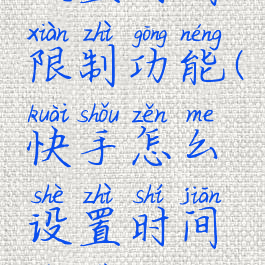 xiàn zhì gōng néng
限制功能(
kuài shǒu zěn me
快手怎么
shè zhì shí jiān
设置时间